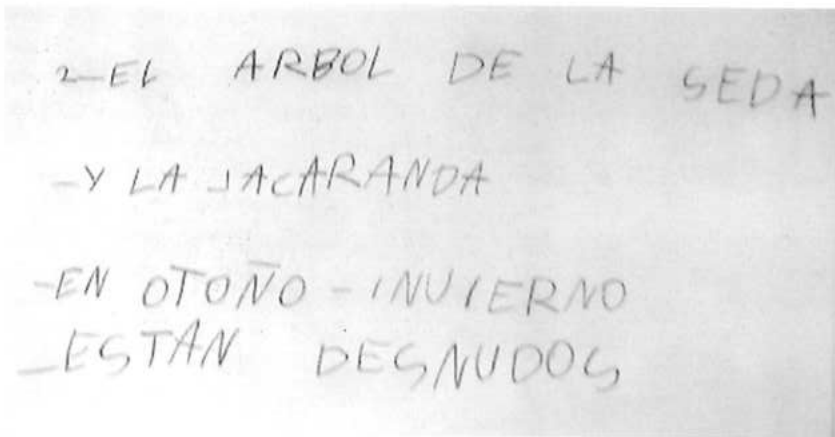 2-EL ARBOL DE LA SEDA
-Y LA JACARANDA
-EN OTOÑO - INVIERNO
-ESTAN DESNUDOS